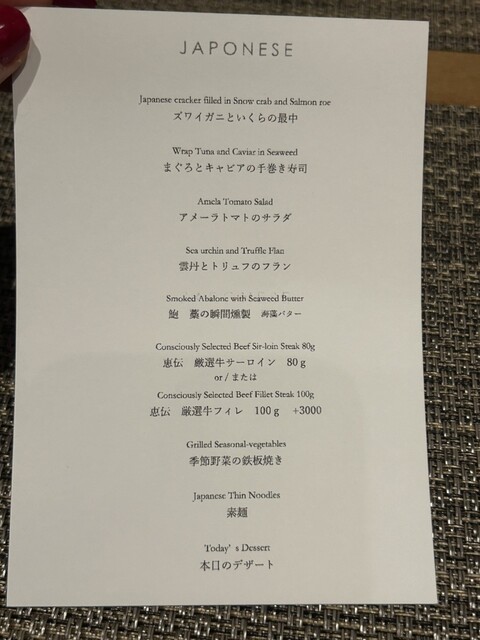 JAPONESE
Japanese cracker filled in Snow crab and Salmon roe
ズワイガニといくらの最中
Wrap Tuna and Caviar in Seaweed
まぐろとキャビアの手巻き寿司
Amela Tomato Salad
アメーラトマトのサラダ
Sea urchin and Truffle Flan
雲丹とトリュフのフラン
Smoked Abalone with Seaweed Butter
鮑　藁の瞬間燻製　海藻バター
Consciously Selected Beef Sir-loin Steak 80g
恵伝　厳選牛サーロイン　80 g
or / または
Consciously Selected Beef Fillet Steak 100g
恵伝　厳選牛フィレ　100 g　+3000
Grilled Seasonal-vegetables
季節野菜の鉄板焼き
Japanese Thin Noodles
素麺
Today’s Dessert
本日のデザート